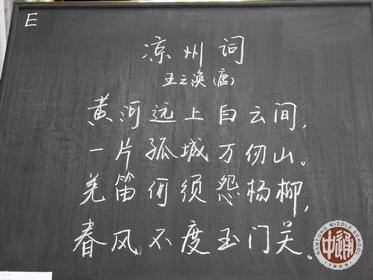 E
凉州词
王之涣(唐)
黄河远上白云间,
一片孤城万仞山。
羌笛何须怨杨柳,
春风不度玉门关。